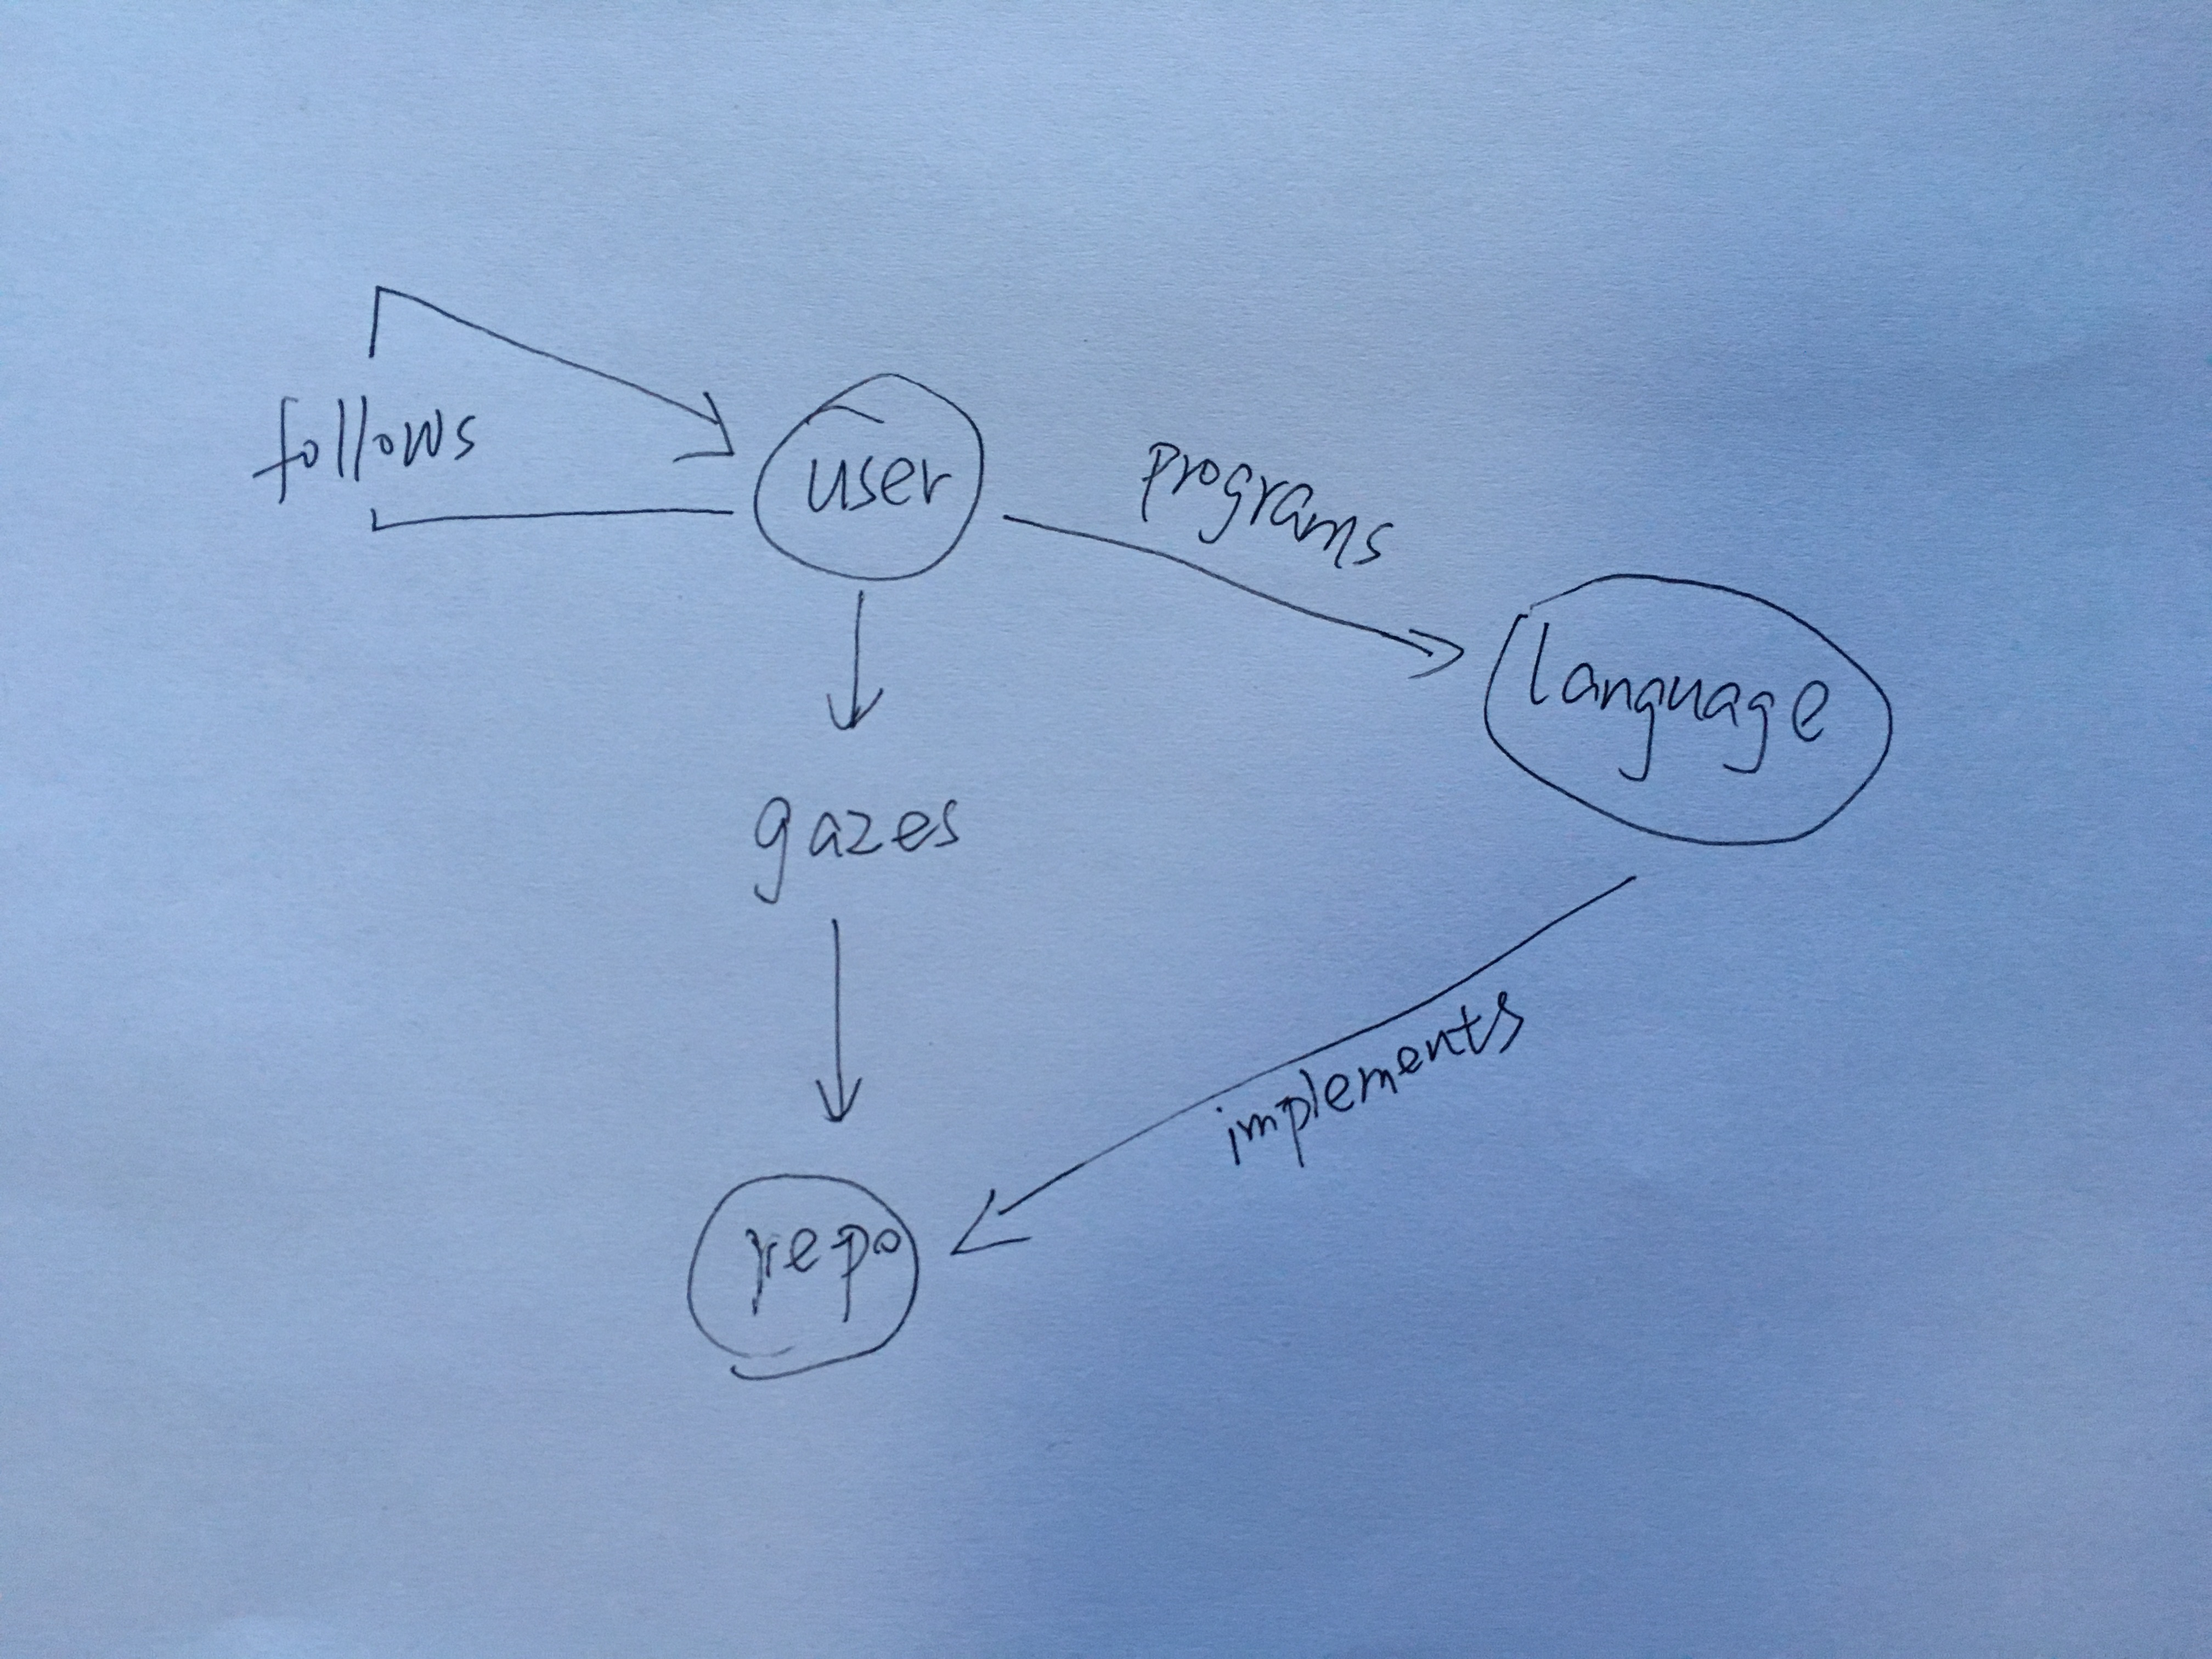 follows
user
programs
language
gazes
implements
repo